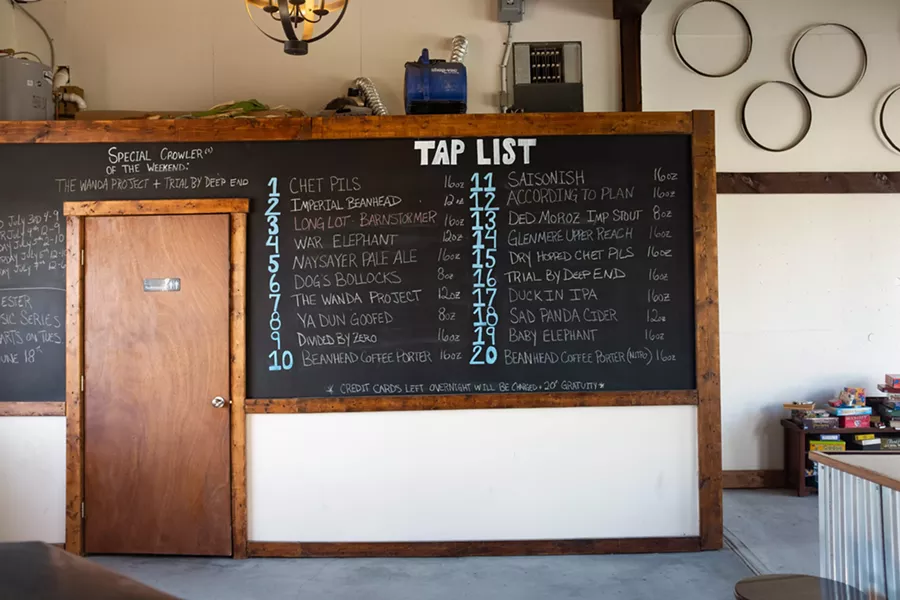 TAP LIST
SPECIAL CROWLER(S)
OF THE WEEKEND:
THE WANDA PROJECT + TRIAL BY DEEP END
1 CHET PILS 16oz
2 IMPERIAL BEANHEAD 12oz
3 LONG LOT - BARNSTORMER 16oz
4 WAR ELEPHANT 12oz
5 NAYSAYER PALE ALE 16oz
6 DOG'S BOLLOCKS 8oz
7 THE WANDA PROJECT 12oz
8 YA DUN GOOFED 8oz
9 DIVIDED BY ZERO 16oz
10 BEANHEAD COFFEE PORTER 16oz
11 SAISONISH 16oz
12 ACCORDING TO PLAN 16oz
13 DED MOROZ IMP STOUT 8oz
14 GLENMERE UPPER REACH 16oz
15 DRY HOPPED CHET PILS 16oz
16 TRIAL BY DEEP END 16oz
17 DUCK IN IPA 16oz
18 SAD PANDA CIDER 12oz
19 BABY ELEPHANT 16oz
20 BEANHEAD COFFEE PORTER (NITRO) 16oz
JULY 3rd 4-9
JULY 4th 2-9
JULY 5th 2-
JULY 12-
ESTER
SIC SERIES
ARTS ON TUES
UNE 18th
* CREDIT CARDS LEFT OVERNIGHT WILL BE CHARGED A 20% GRATUITY *